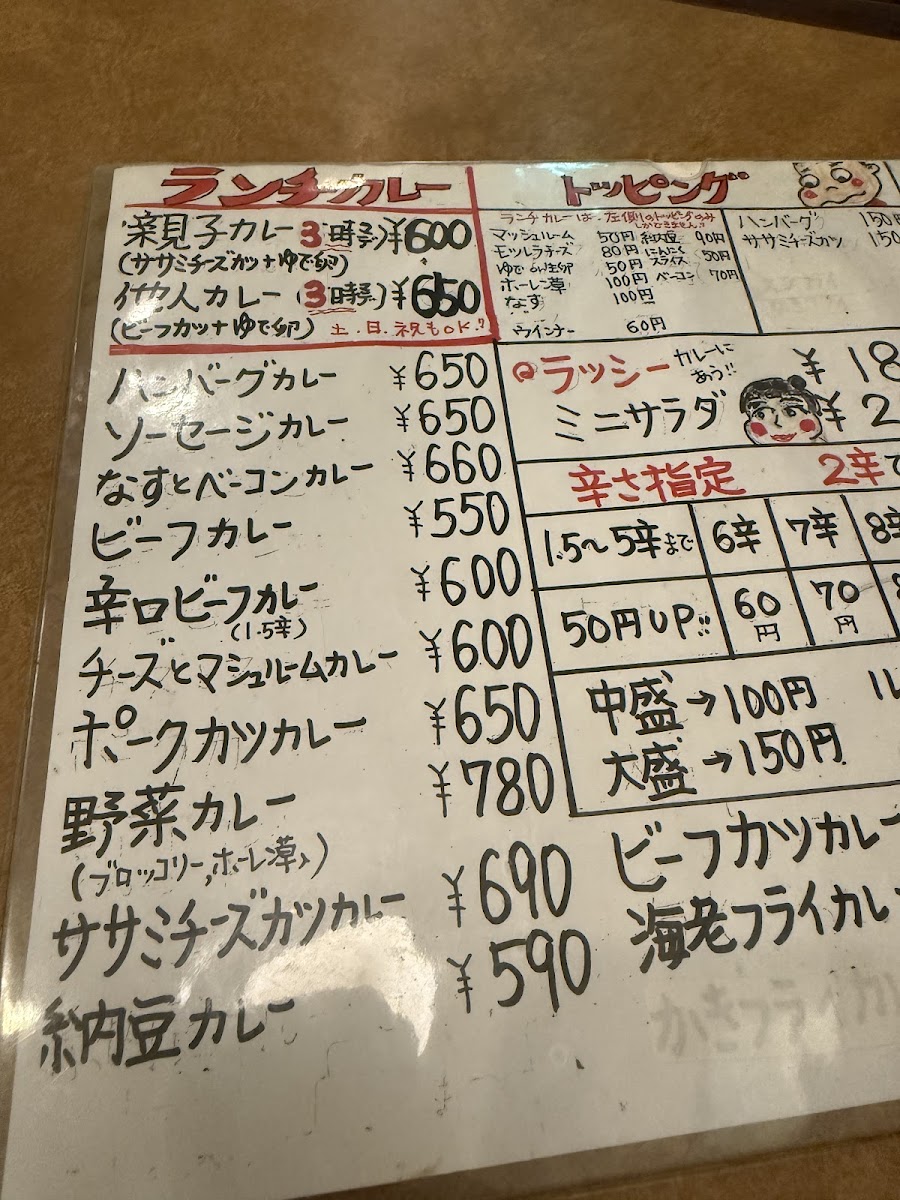 ランチカレー
親子カレー(3時まで)¥600
(ササミチーズカツ+ゆで卵)
他人カレー(3時まで)¥650
(ビーフカツ+ゆで卵) 土.日.祝もOK!!
ハンバーグカレー ¥650
ソーセージカレー ¥650
なすとベーコンカレー ¥660
ビーフカレー ¥550
辛口ビーフカレー ¥600
(1.5辛)
チーズとマシュルームカレー ¥600
ポークカツカレー ¥650
野菜カレー ¥780
(ブロッコリー,ホーレン草,)
ササミチーズカツカレー ¥690
納豆カレー ¥590
トッピング
ランチカレーは、左側のトッピングのみ
しかできません!!
マッシュルーム 50円 納豆 90円
モツレラチーズ 80円 にんにくスライス 50円
ゆで卵 50円 ベーコン 70円
ホーレン草 100円
なす 100円
ウインナー 60円
ハンバーグ 150円
ササミチーズカツ 150
ラッシー カレーにあう!! ¥18
ミニサラダ ¥2
辛さ指定 2辛で
1.5〜5辛まで 6辛 7辛 8辛
50円UP!! 60円 70円
中盛→100円
大盛→150円
ビーフカツカレー
海老フライカレ
かきフライカレ